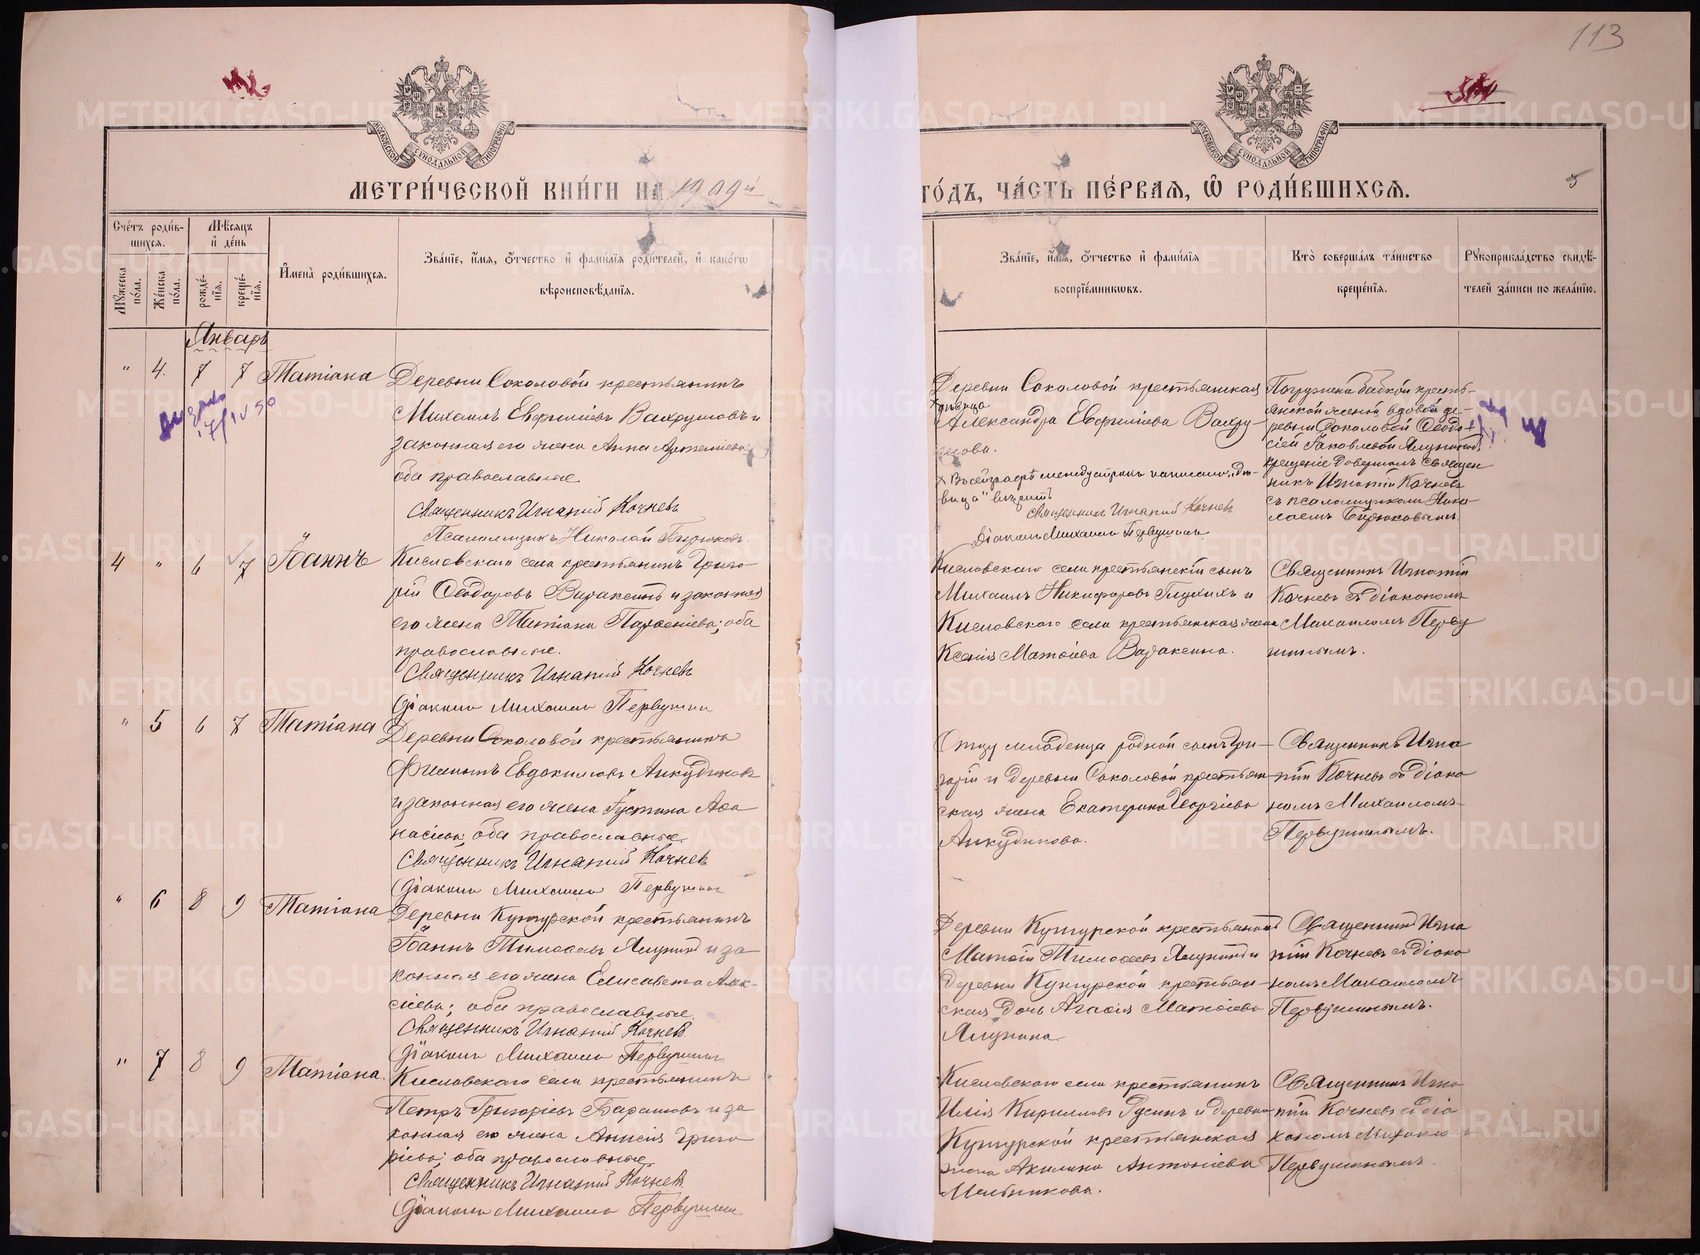 113
МЕТРИ́ЧЕСКОЙ КНИ́ГИ НА 1909й
ГО́ДЪ, ЧА́СТЬ ПЕ́РВАЯ, Ѿ РОДИ́ВШИХСЯ.
5
Сче́тъ роди́в-
шихся.
Мѣ́сяцъ
и҆ де́нь
Мꙋ́жеска по́ла.
Же́нска по́ла.
рожде́-
нїѧ.
креще́-
нїѧ.
И҆мена̀ роди́вшихся.
Зва́нїе, и҆́мя, о҆́тчество и҆ фами́лїѧ роди́телей, и҆ како́гѡ
вѣроисповѣ́данїѧ.
Зва́нїе, и҆́мя, о҆́тчество и҆ фами́лїѧ
воспрїе́мникѡвъ.
Кто̀ соверша́лъ та́инство
креще́нїѧ.
Рꙋкоприкла́дство свидѣ́-
телей за́писи по жела́нїю.
Январь
" 4. 7 7 Татiана
Деревни Соколовой крестьянинъ
Михаилъ Евфимiевъ Вахрушовъ и
законная его жена Анна Артемiева;
оба православные
Священникъ Игнатiй Кочневъ
Псаломщикъ Николай Бирюковъ.
Деревни Соколовой крестьянская
х дѣвица
Александра Евфимiева Вахру-
шова.
х Въ сей графѣ между строкъ написано „дѣ-
вица" вѣрить
Священникъ Игнатiй Кочневъ
Дiаконъ Михаилъ Первушинъ
Погружена бабкой кресть-
янской женой вдовой де-
ревни Соколовой Ѳеодо-
сiей Iаковлевой Ялуниной,
крещенiе довершилъ Священ-
никъ Игнатiй Кочневъ
съ псаломщикомъ Нико-
лаемъ Бирюковымъ.
4 " 6 7 Iоаннъ
Кисловскаго села крестьянинъ Григо-
рiй Ѳеодоровъ Вараксинъ и законная
его жена Татiана Парѳенiева; оба
православные.
Священникъ Игнатiй Кочневъ
Дiаконъ Михаилъ Первушинъ
Кисловскаго села крестьянскiй сынъ
Михаилъ Никифоровъ Глухихъ и
Кисловскаго села крестьянская жена
Ксенiя Матѳiева Вараксина.
Священникъ Игнатiй
Кочневъ съ дiакономъ
Михаиломъ Перву
шинымъ.
" 5 6 7 Татiана
Деревни Соколовой крестьянинъ
Филиппъ Евдокимовъ Анкудиновъ
и законная его жена Iустина Аѳа
насiева; оба православные
Священникъ Игнатiй Кочневъ
Дiаконъ Михаилъ Первушинъ
Отцу младенца родной сынъ Гри-
горiй и деревни Соколовой крестьян-
ская жена Екатерина Георгiева
Анкудинова.
Священникъ Игна
тiй Кочневъ съ дiако
номъ Михаиломъ
Первушинымъ.
" 6 8 9 Татiана
Деревни Кунгурской крестьянинъ
Iоаннъ Тимоѳеевъ Ялунинъ и за
конная его жена Елисавета Алек-
сiева; оба православные
Священникъ Игнатiй Кочневъ
Дiаконъ Михаилъ Первушинъ
Деревни Кунгурской крестьянинъ
Матѳiй Тимоѳеевъ Ялунинъ и
деревни Кунгурской крестьян-
ская дочь Агаѳiя Матѳiева
Ялунина
Священникъ Игна
тiй Кочневъ съ дiако
номъ Михаиломъ
Первушинымъ.
" 7 8 9 Татiана.
Кисловскаго села крестьянинъ
Петръ Григорiевъ Барашовъ и за
конная его жена Анисiя Григо
рiева; оба православные
Священникъ Игнатiй Кочневъ
Дiаконъ Михаилъ Первушинъ
Кисловскаго села крестьянинъ
Илiя Кирилловъ Русинъ и деревни
Кунгурской крестьянская
жена Акилина Антонiева
Мельникова.
Священникъ Игна
тiй Кочневъ съ дiа
кономъ Михаиломъ
Первушинымъ.
METRIKI.GASO-URAL.RU